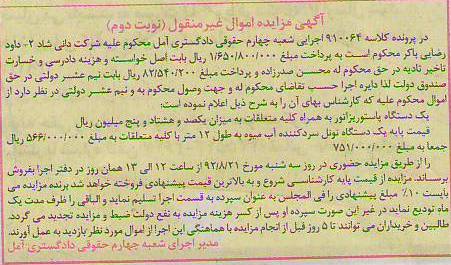 آگهی مزایده اموال غیر منقول (نوبت دوم)
در پرونده کلاسه ۹۱۰۰۶۴ اجرایی شعبه چهارم حقوقی دادگستری آمل محکوم علیه شرکت دانی شاد ۲- داود
رضایی باکر محکوم است به پرداخت مبلغ ۱/۶۵۰/۸۰۰/۰۰۰ ریال بابت اصل خواسته و هزینه دادرسی و خسارت
تاخیر تادیه در حق محکوم له محسن صدرزاده و پرداخت مبلغ ۸۲/۵۴۰/۲۰۰ ریال بابت نیم عشر دولتی در حق
صندوق دولت لذا دایره اجرا حسب تقاضای محکوم له و جهت وصول محکوم به و نیم عشر دولتی در نظر دارد از
اموال محکوم علیه که کارشناس بهای آن را به شرح ذیل اعلام نموده است:
یک دستگاه پاستوریزاتور به همراه کلیه متعلقات به میزان یکصد و هشتاد و پنج میلیون ریال
قیمت پایه یک دستگاه تونل سردکننده آب میوه به طول ۱۲ متر با کلیه متعلقات به مبلغ ۵۶۶/۰۰۰/۰۰۰ ریال
جمعا به مبلغ ۷۵۱/۰۰۰/۰۰۰
را از طریق مزایده حضوری در روز سه شنبه مورخ ۹۲/۸/۲۱ از ساعت ۱۲ الی ۱۳ همان روز در دفتر اجرا بفروش
برساند. مزایده از قیمت پایه کارشناسی شروع و به بالاترین قیمت پیشنهادی فروخته خواهد شد برنده مزایده می
بایست ۱۰٪ مبلغ پیشنهادی را فی المجلس به عنوان سپرده به قسمت اجرا تسلیم نماید و الباقی را ظرف مدت یک
ماه تودیع نماید در غیر این صورت سپرده او پس از کسر هزینه مزایده به نفع دولت ضبط و مزایده تجدید می گردد.
طالبین و خریداران می توانند تا ۵ روز قبل از انجام مزایده با هماهنگی این اجرا از اموال مورد نظر بازدید به عمل آورند.
مدیر اجرای شعبه چهارم حقوقی دادگستری آمل